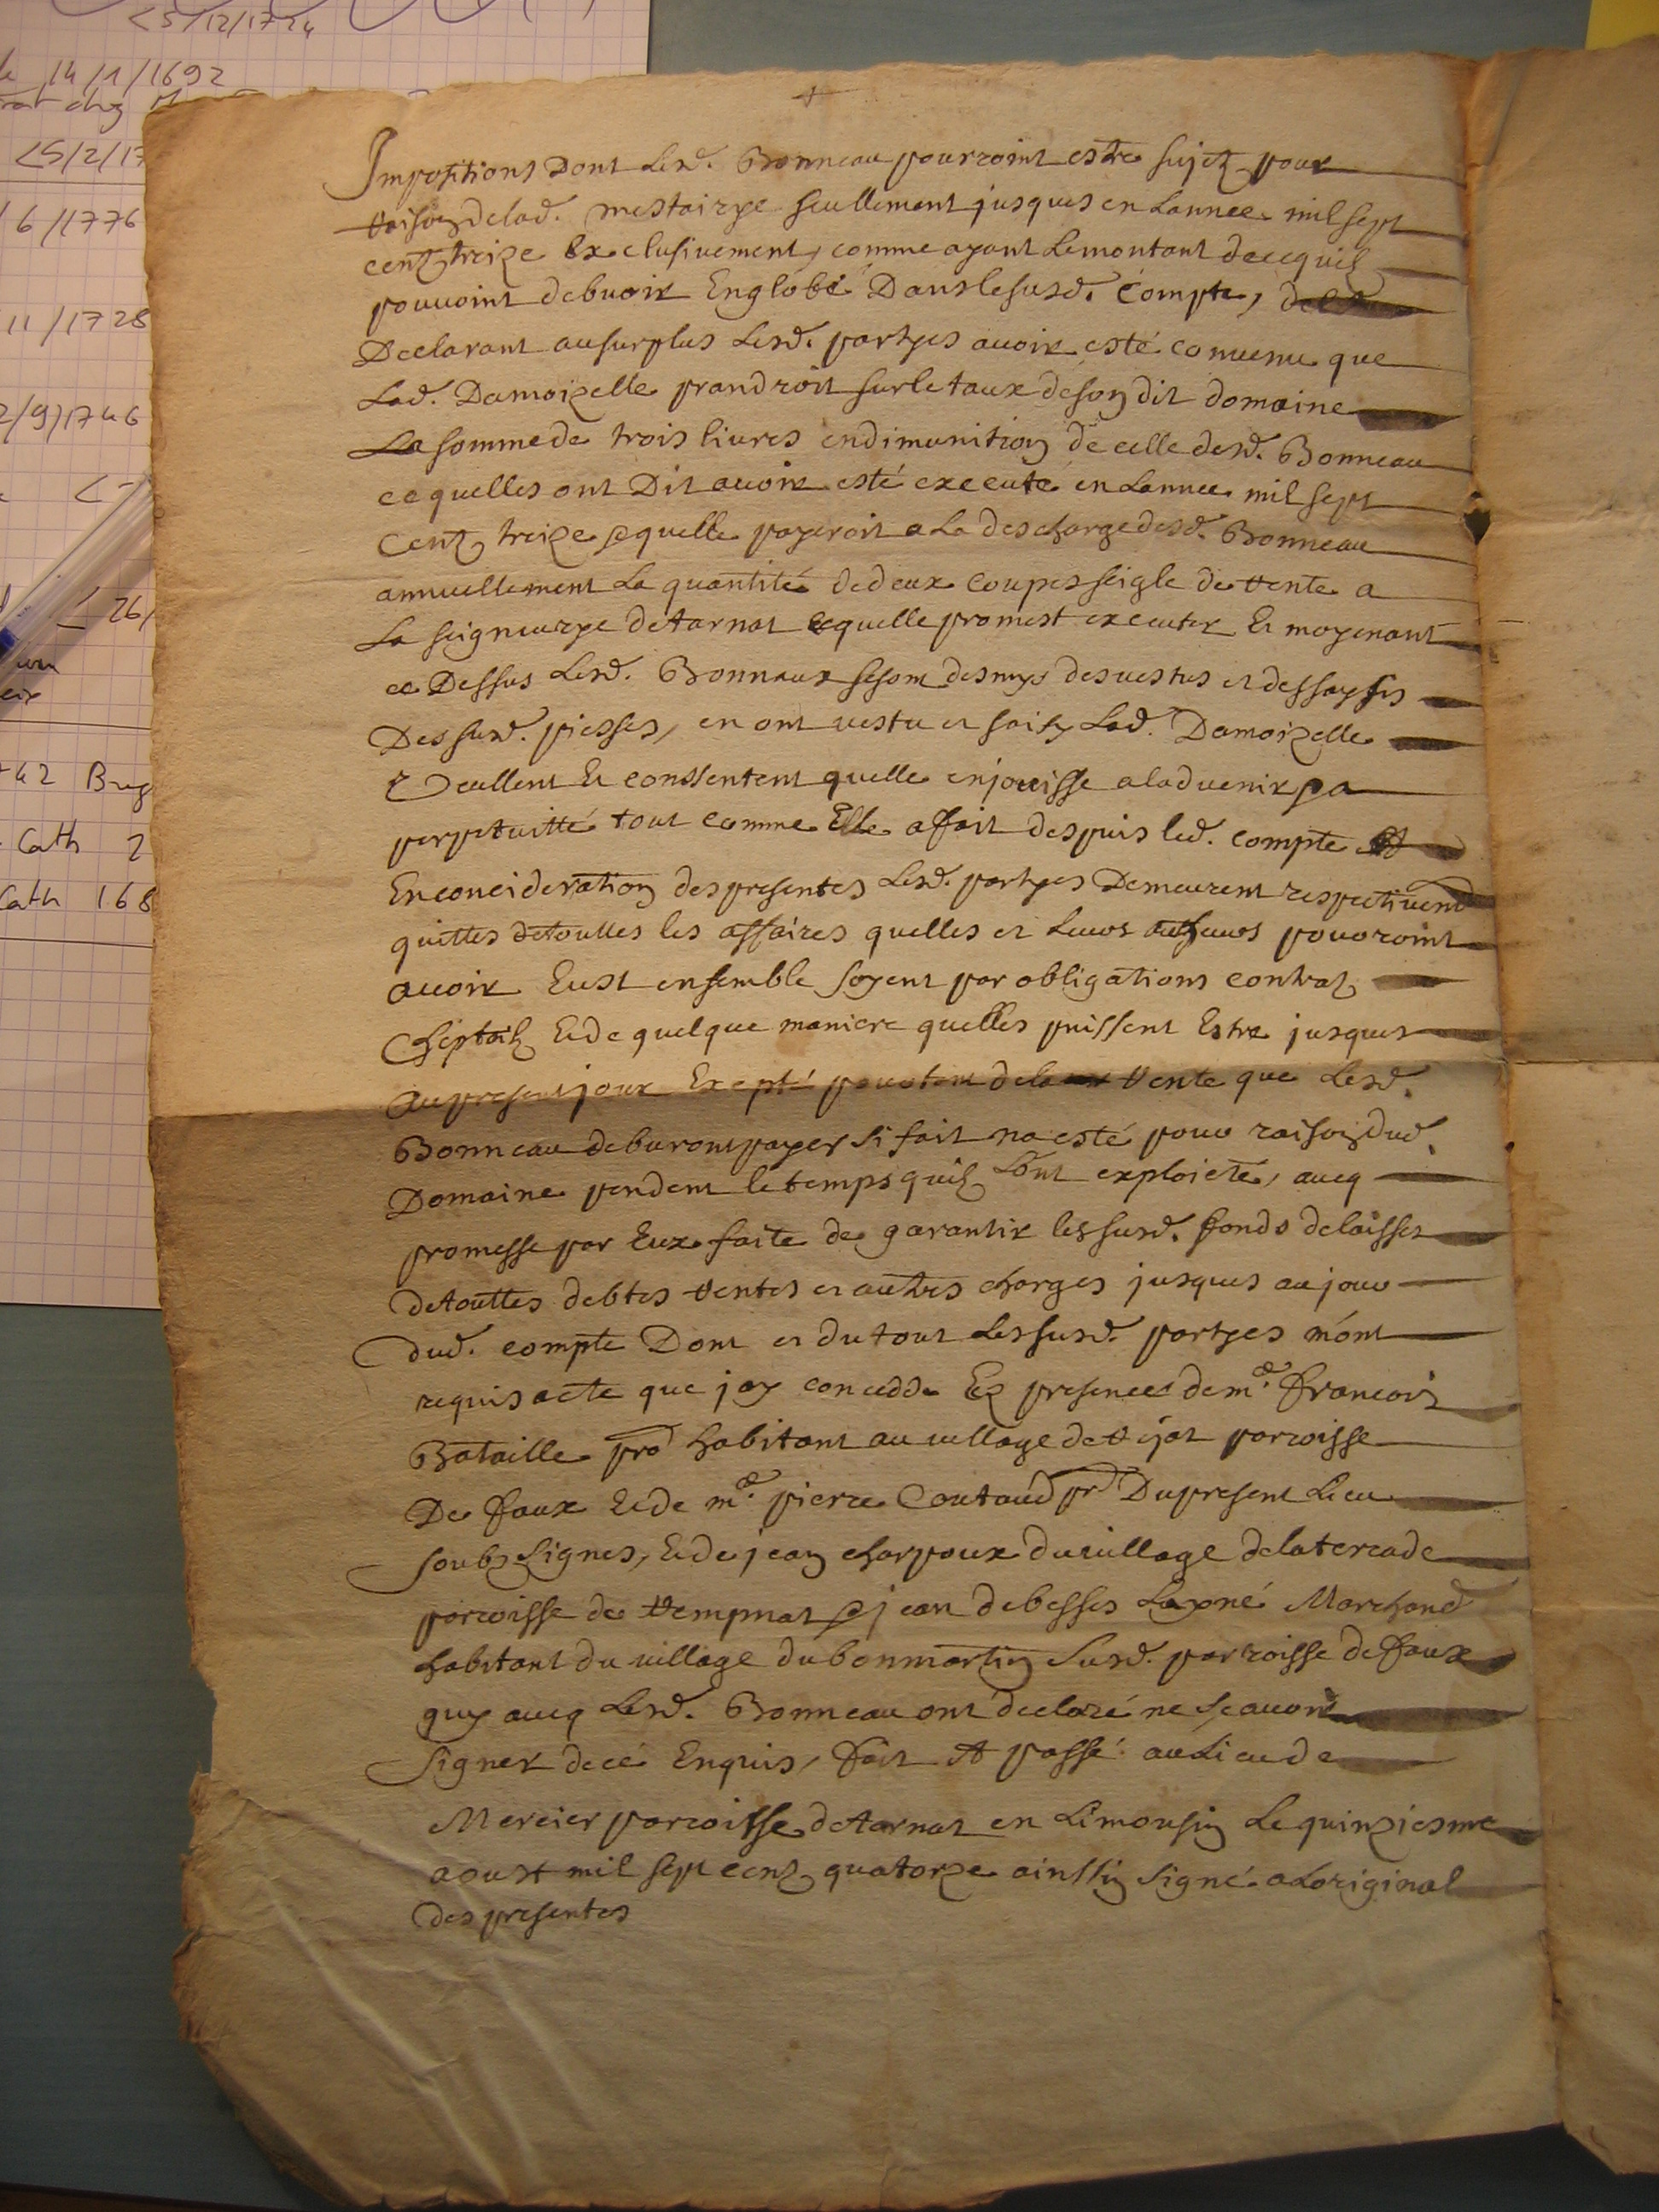 <5/12/1724
le 14/1/1692
<5/2/17
6/1776
11/1728
2/9/1746
< 26/
+42 Bug
Cath 2
Cath 168
Impositions Dont Lesd. Bonneau pourroint estre sujetz pour
raison delad. mestairye seullement jusques en Lannee mil sept
centz treize Exclusivement, comme ayant Lemontant de ce quilz
pouvoint debvoir Englobé Dans le susd. Compte,
Declarant au surplus Lesd. partyes avoir esté convenu que
Lad. Damoizelle prandroit sur le taux de son dit domaine
La somme de trois livres en dimunition de celle desd. Bonneau
ce quelles ont Dit avoir esté executé en Lannee mil sept
Centz treize & quelle payeroit a La descharge desd. Bonneau
annuellement La quantité de deux coupes seigle de rente a
La seigneurye de tarnat ce quelle promest executer Et moyenant
ce Dessus Lesd. Bonnaux se sont desmys desvestus et dessaysis
Des susd. piesses, en ont vestu et saisy Lad. Damoizelle
Veullent Et conssentent quelle en jouisse a ladvenir & a
perpetuitté tout comme Elle a ffait despuis led. compte Et
En concideration des presentes Lesd. partyes Demeurent respectivemt
quittes de touttes les affaires quelles et Leurs autheurs pouroint
avoir Eust ensemble soyent par obligations contratz
Cheptailz Et de quelque maniere quelles puissent Estre jusques
au present jour Exepté pourtant de la rente que Lesd.
Bonneau deburont payer si fait na esté pour raison dud.
Domaine pendent le temps quilz Lont exploicté, avcq
promesse par Eux faite de garantir les susd. fonds delaisses
de touttes debtes rentes et autres charges jusques au jour
dud. compte Dont et du tout Les susd. partyes m'ont
requis acte que jay concedde Ez presences de me. francois
Bataille pra habitant au village de vijat parroisse
De faux Et de me. pierre Coutaud pr Du present Lieu
soubz signes, Et de jean charpoux du village de la tercade
parroisse de rempnat & jean debesses Layné Marchand
habitant du village du bonmartin susd. parroisse de faux
quy avcq Lesd. Bonneau ont declaré ne scavoir
signer de ce Enquis, fait Et passé au Lieu de
Mercier parroisse de tarnat en Limousin Le quinziesme
aoust mil sept centz quatorze ainssin signé a Loriginal
des presentes